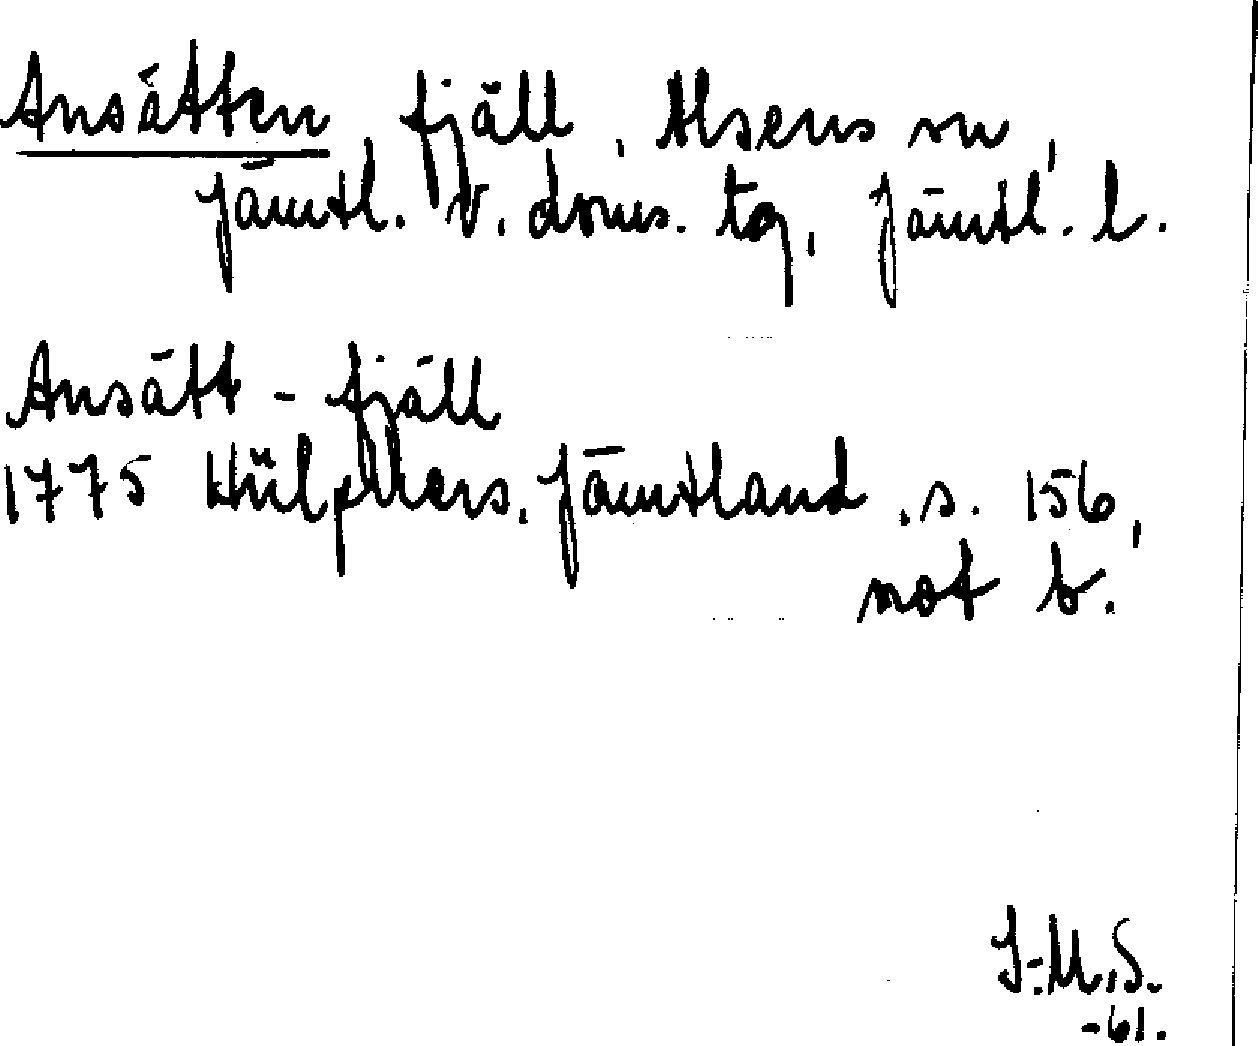 Ansätten, fjäll, Alsens sn,
Jämtl. V. doms. tg, Jämtl. l.
Ansätt-fjäll
1775 Hülphers, Jämtland, s. 156,
not b.
I-M.S.
-61.